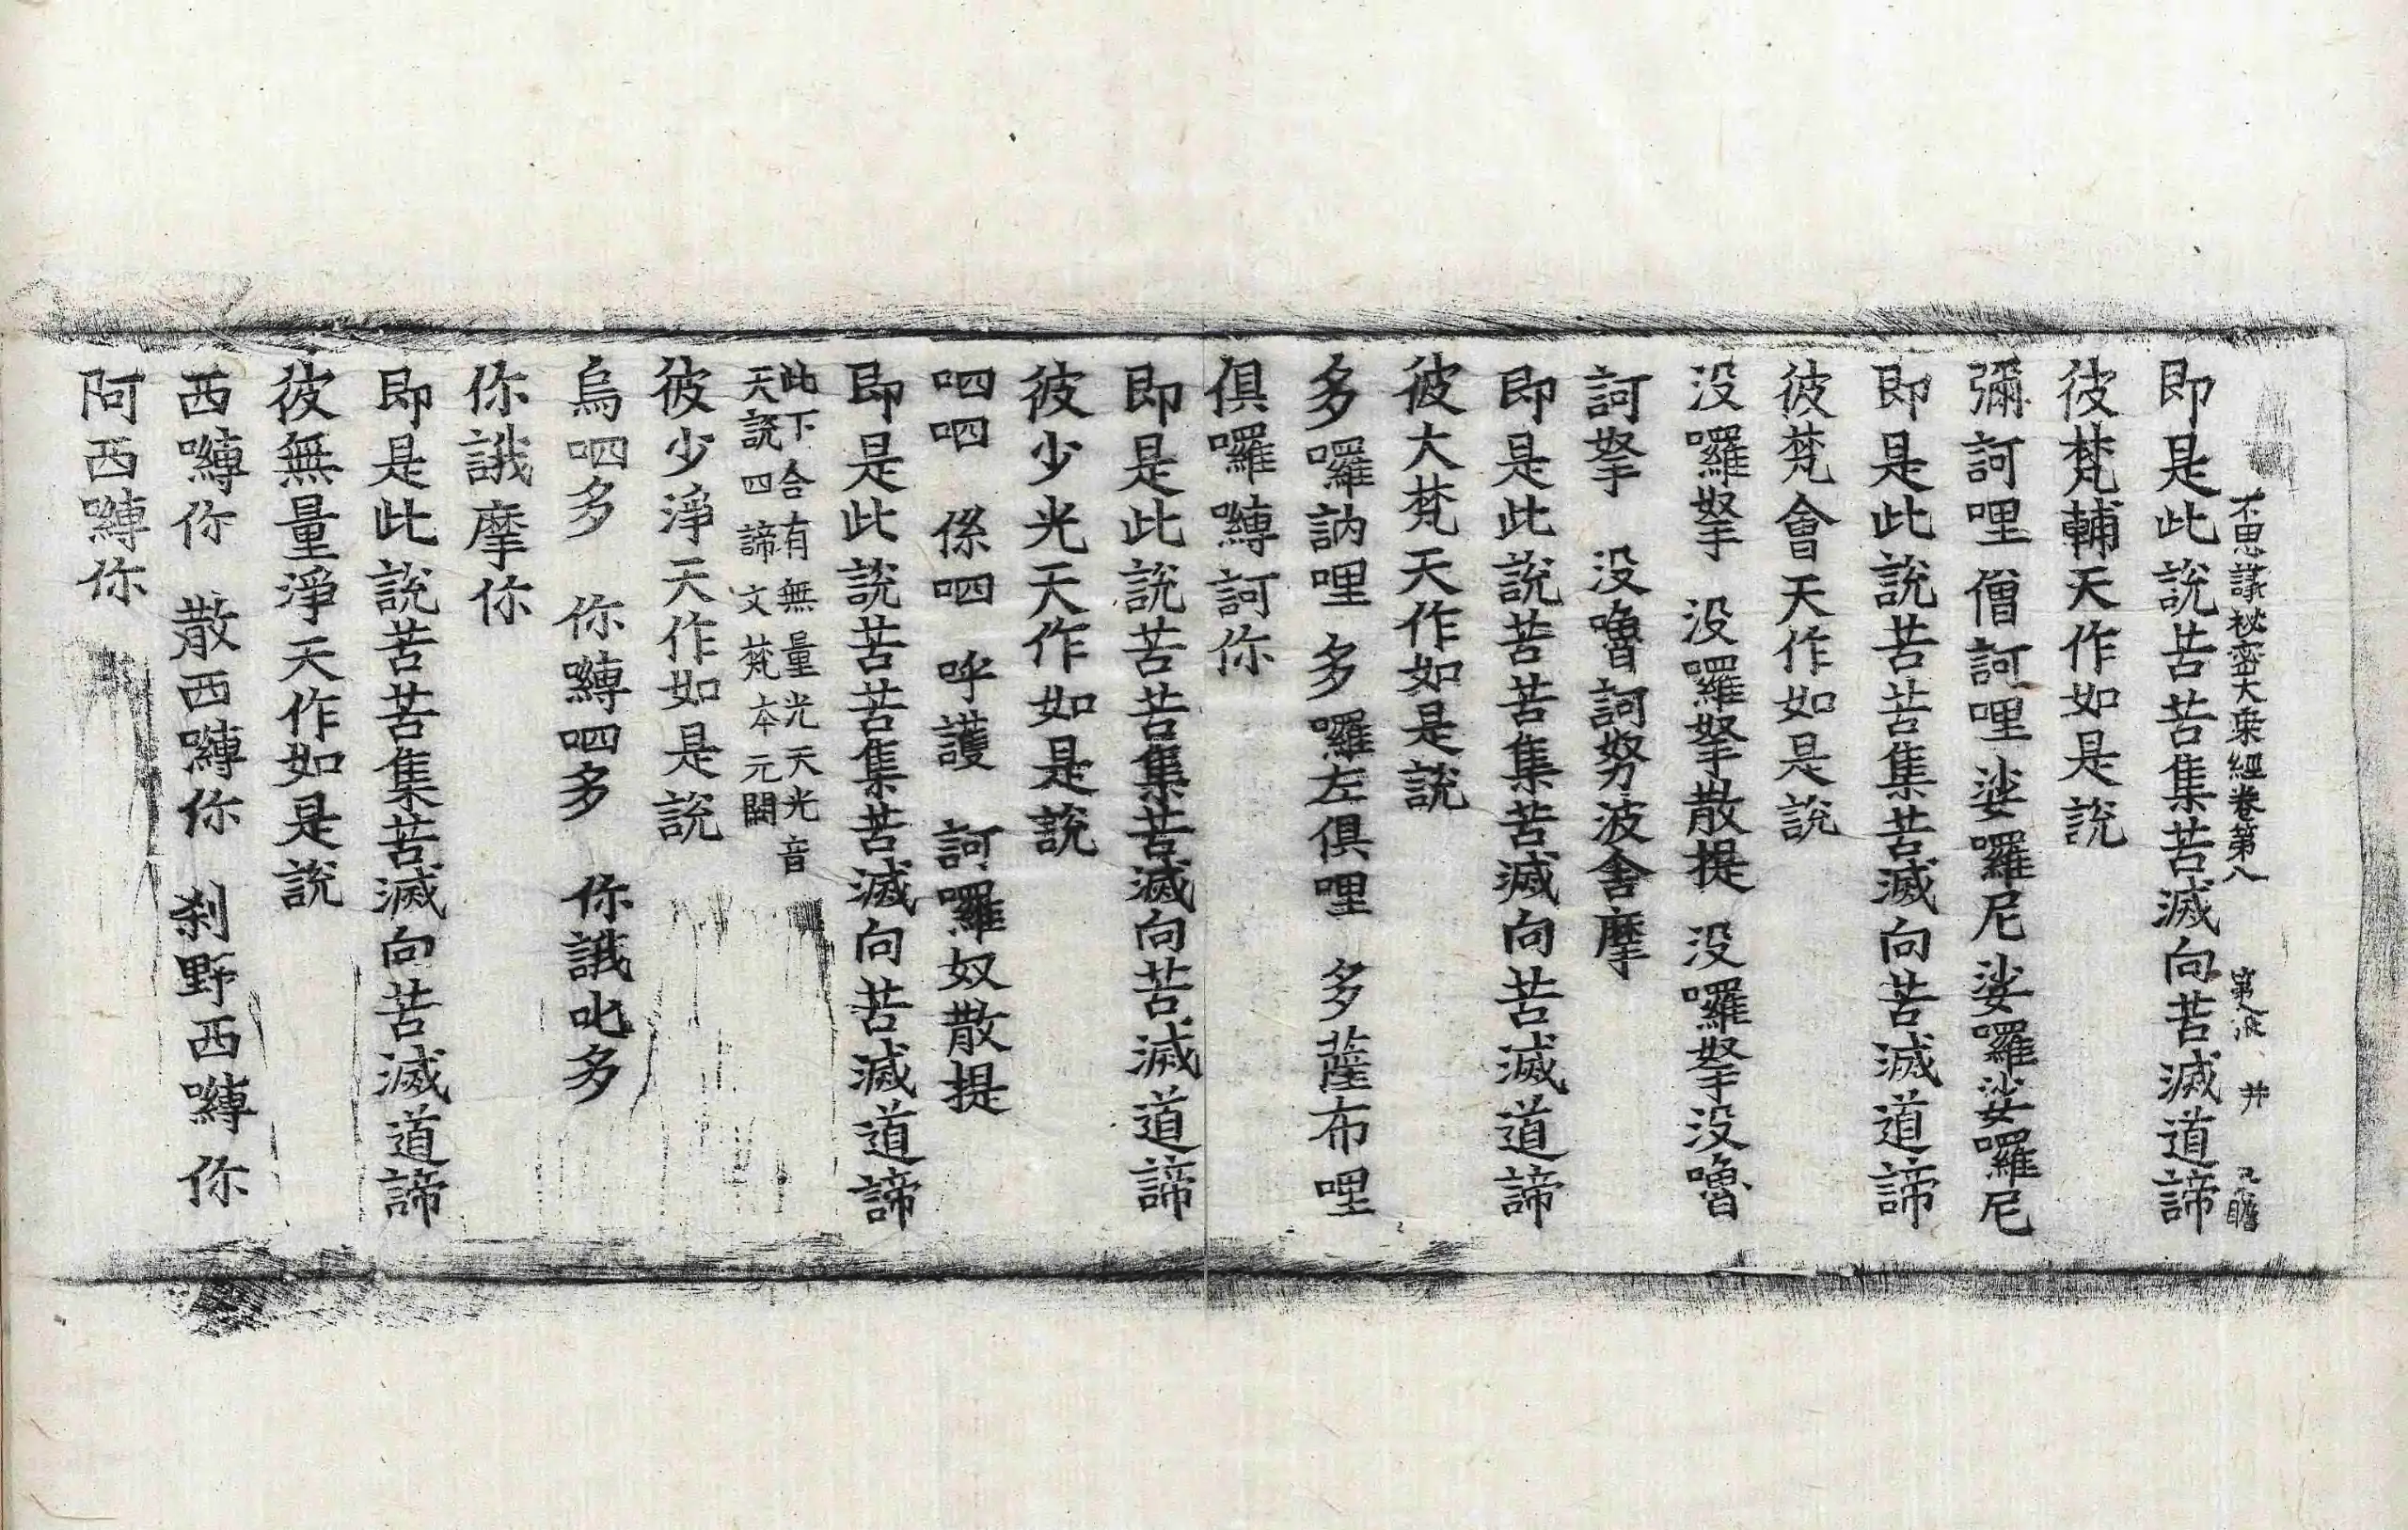 不思議秘密大乗經卷第八 第八張 井
即是此説苦苦集苦滅向苦滅道諦
彼梵輔天作如是説
彌訶哩僧訶哩娑囉尼娑囉娑囉尼
即是此説苦苦集苦滅向苦滅道諦
彼梵會天作如是説
没囉拏 没囉拏散提 没囉拏没嚕
訶拏 没嚕訶努波舍摩
即是此説苦苦集苦滅向苦滅道諦
彼大梵天作如是説
多囉訥哩 多囉左俱哩 多薩布哩
俱囉嚩訶你
即是此説苦苦集苦滅向苦滅道諦
彼少光天作如是説
呬呬 係呬 呼護 訶囉奴散提
即是此説苦苦集苦滅向苦滅道諦
此下合有無量光天光音
天説四諦文梵本元闕
彼少淨天作如是説
烏呬多 你嚩呬多 你誐叱多
你誐摩你
即是此説苦苦集苦滅向苦滅道諦
彼無量淨天作如是説
西嚩你 散西嚩你 刹野西嚩你
阿西嚩你